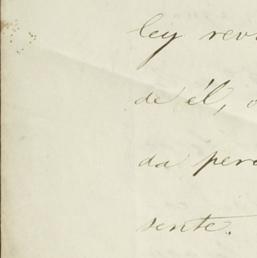 ley rev
de él, o
da pero
sente.